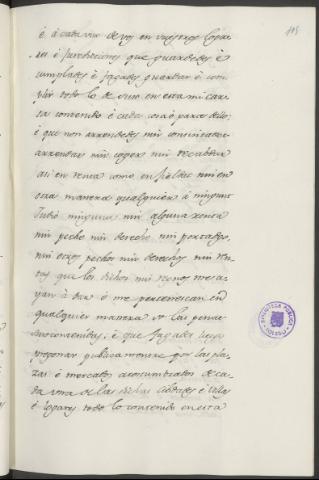 105
é à cada uno de vos en vuestros logares
é Jurediciones que guardedes é
cumplades é fagades guardar é com
plir todo lo de suso en esta mi car
ta contenido é cada cosa é parte dello:
é que non arrendedes nin consintades
arrendar nin coger nin recabdar
asi en renta como en fieldat nin en
otra manera qualquier à ningunt
Judio ninguna nin alguna renta
nin pecho nin derecho nin portadgo,
nin otros pechos nin derechos nin ren
tas que los dichos mis Regnos me ha
yan à dar é me pertenescan en
qualquier manera so las penas
suso contenidas; é que fagades luego
pregonar publicamente por las pla
zas é mercados acostumbrados de ca
da una de las dichas cibdades é villas
é logares todo lo contenido en esta
BIBLIOTECA PUBLICA
TOLEDO